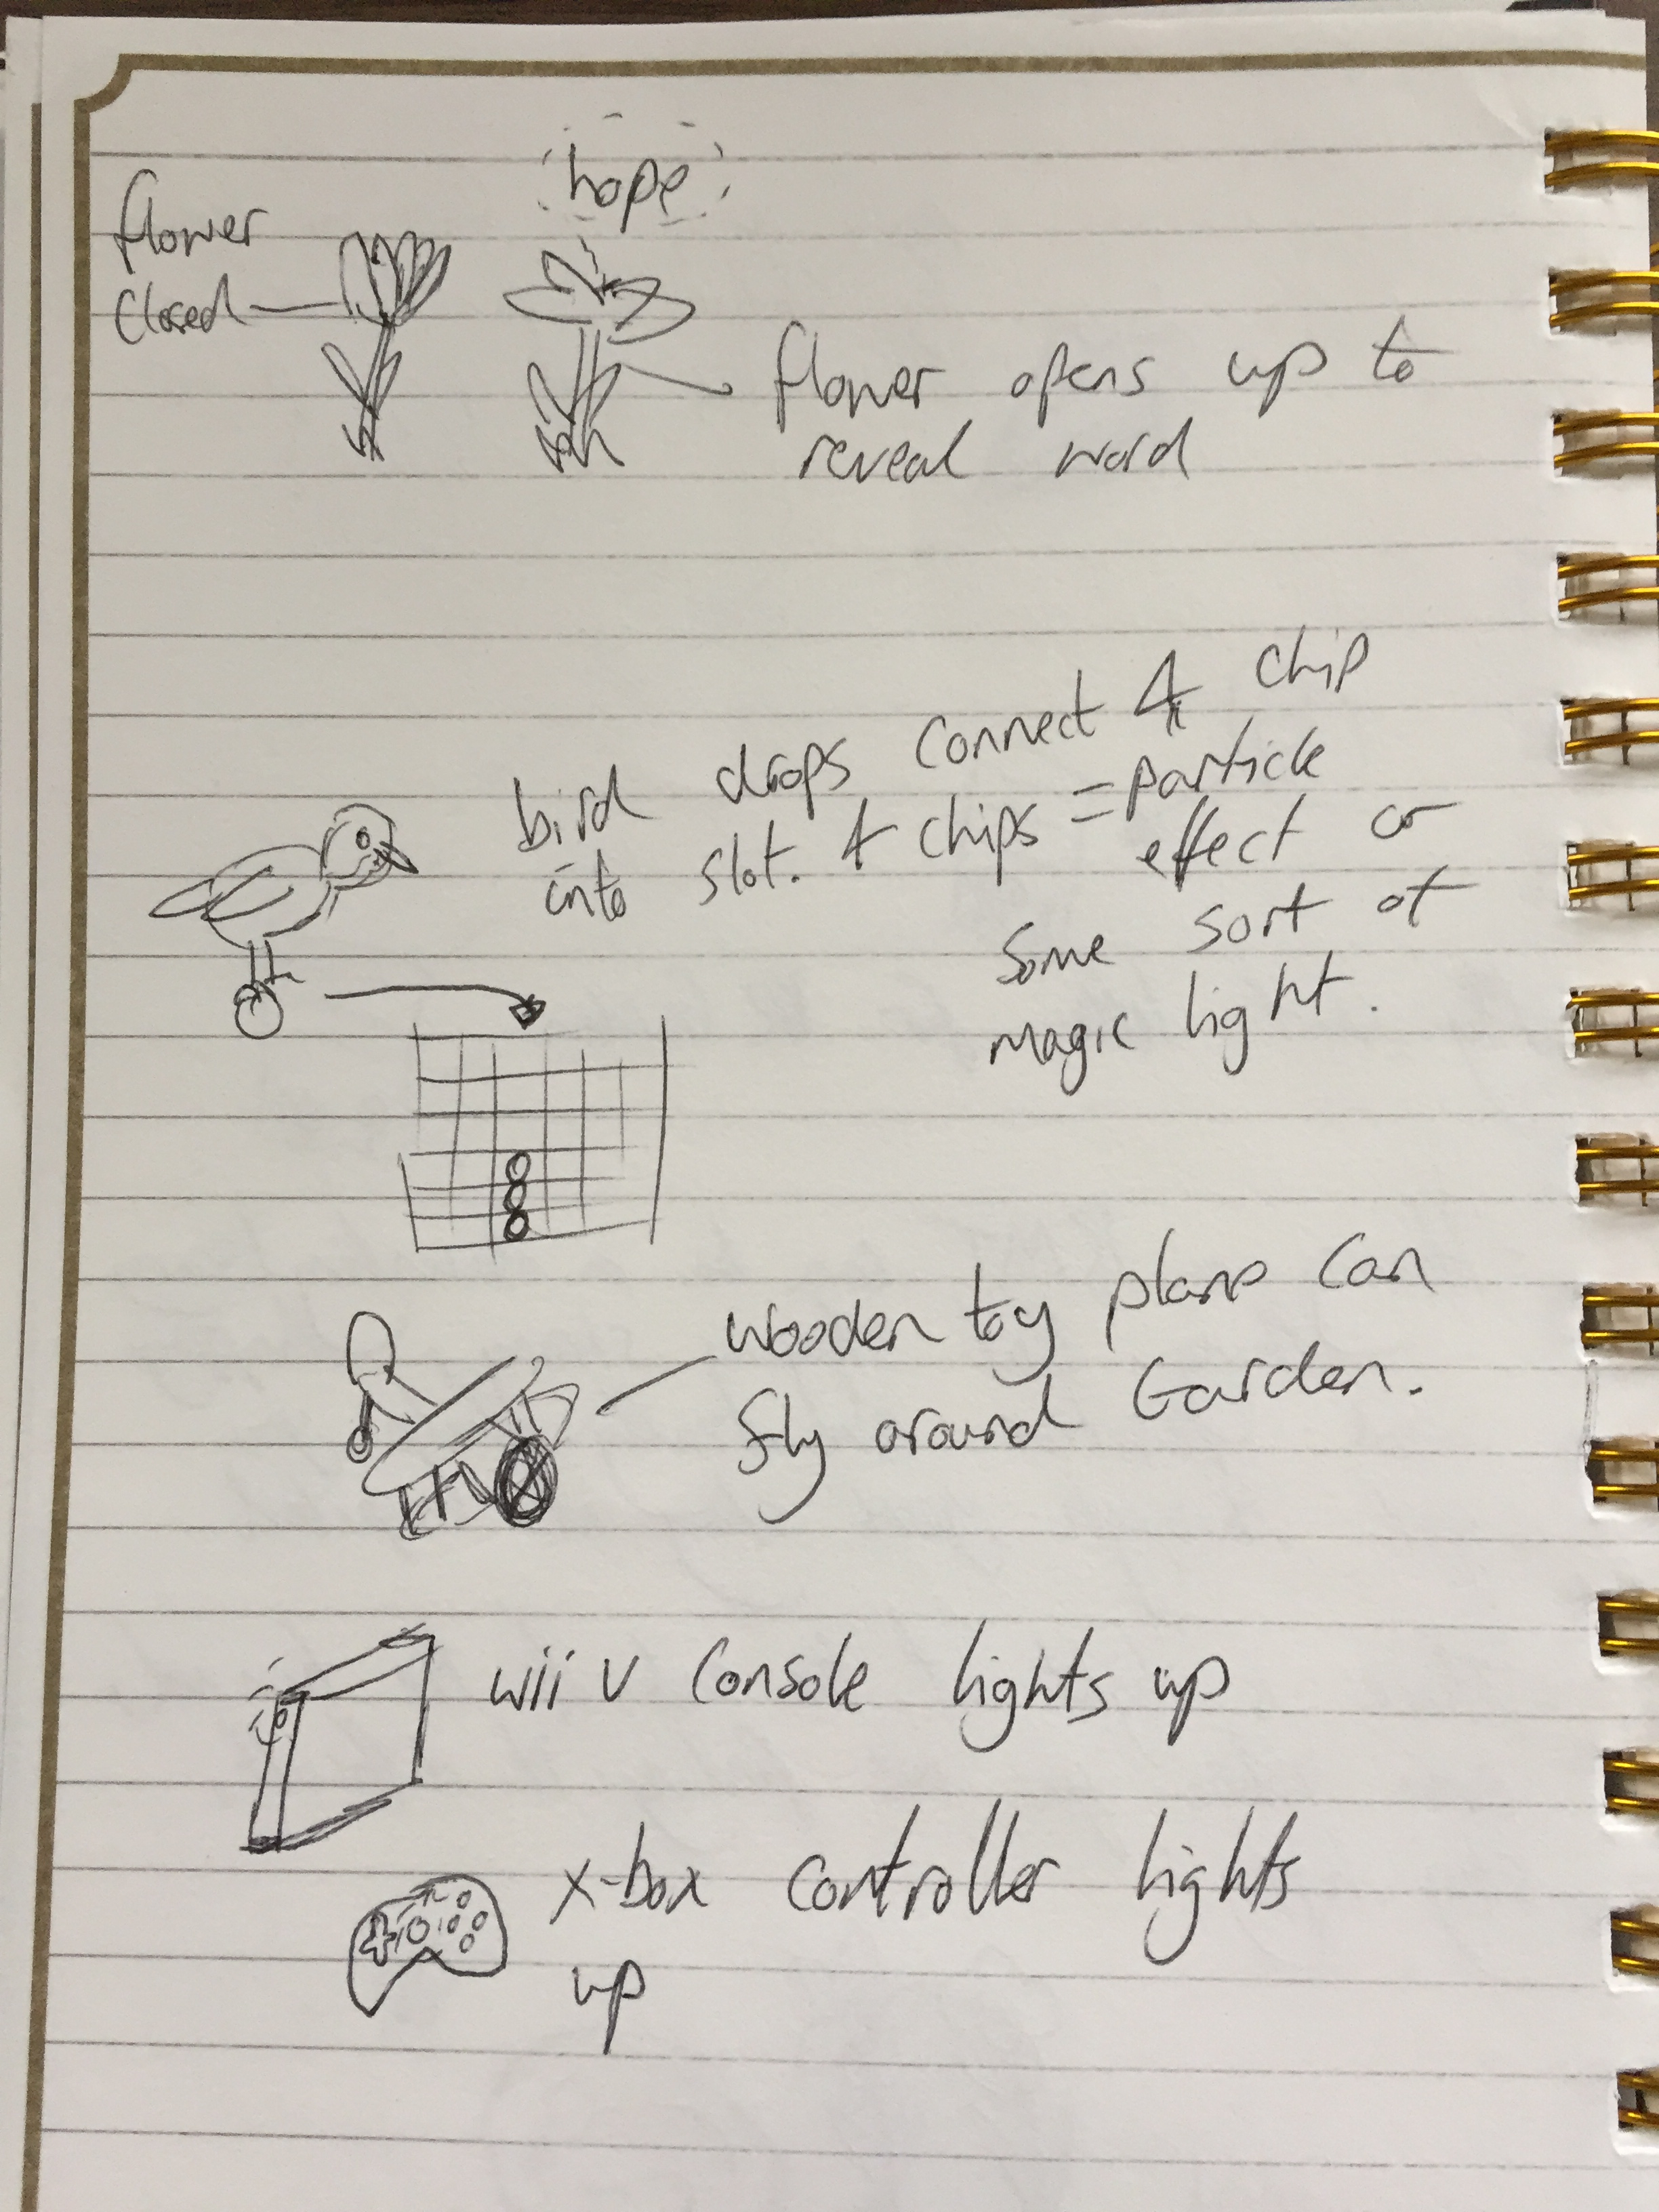 hope
flower
closed
flower opens up to
reveal word
bird drops connect 4 chip
into slot. 4 chips = particle
effect or
some sort of
magic light.
wooden toy plane can
fly around Garden.
wii U console lights up
x-box controller lights
up